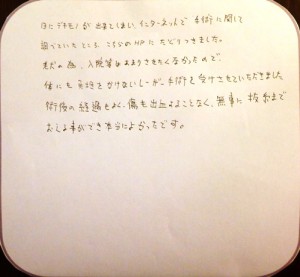 目にデキモノが出来てしまい、インターネットで手術に関して
調べていたところ、こちらのHPにたどりつきました。
犬の為、入院等あまりさせたくなかったので、
体にも負担をかけないレーザー手術を受けさせていただきました。
術後の経過もよく、傷も出血することなく、無事に抜糸まで
おこし事ができ本当によかったです。